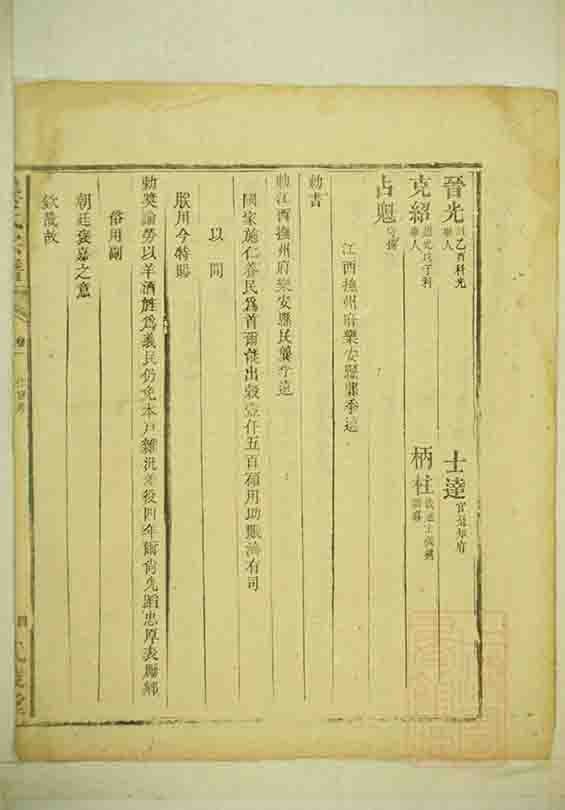 晉光 乙酉科 舉人
士達 官 知府
克紹 道光戊子科 舉人
柄柱
占魁
江西撫州府樂安縣龔季遠
勅書
勅江西撫州府樂安縣民龔季遠
國家施仁養民爲首爾能出穀壹仟五百碩用助賑濟有司
以聞
朕用今特賜
勅獎諭勞以羊酒旌爲義民仍免本戶雜泛差役四年爾尚允蹈忠厚表厲鄉
俗用副
朝廷褒嘉之意
欽哉故
四